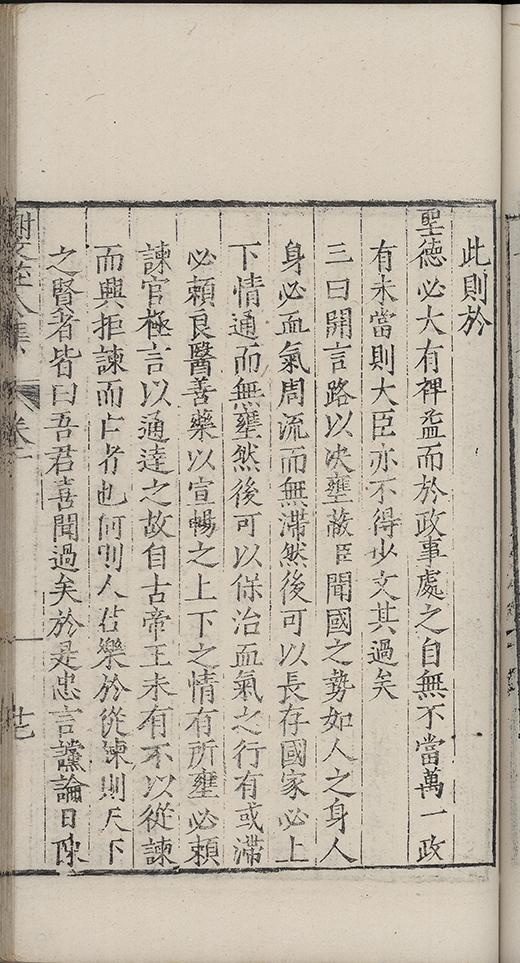 此則於
聖德必大有裨益而於政事處之自無不當萬一政
有未當則大臣亦不得以文其過矣
三曰開言路以决壅蔽臣聞國之勢如人之身人
身必血氣周流而無滯然後可以長存國家必上
下情通而無壅然後可以保治血氣之行有或滯
必賴良醫善藥以宣暢之上下之情有所壅必賴
諫官極言以通達之故自古帝王未有不以從諫
而興拒諫而亡者也何則人君樂於從諫則天下
之賢者皆曰吾君喜聞過矣於是忠言讜論日陳
集 卷二
廿七